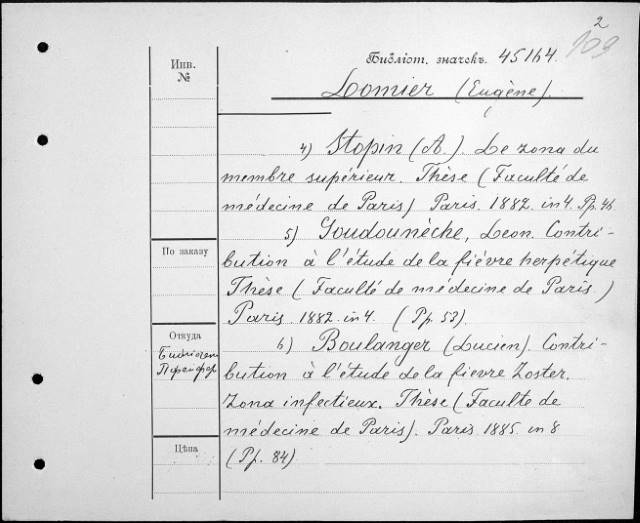 2
103
Инв.
№
Библіот. значекъ. 45164.
Lomier (Eugène).
4) Stopin (A.) Le zona du
membre supérieur. Thèse (Faculté de
médecine de Paris) Paris. 1882. in 4. Pp. 46
5) Goudounèche, Leon. Contri-
bution à l'étude de la fièvre herpétique
Thèse (Faculté de médecine de Paris.)
Paris. 1882. in 4. (Pp. 53).
6) Boulanger (Lucien). Contri-
bution à l'étude de la fievre Zoster.
Zona infectieux. Thèse (Faculte de
médecine de Paris). Paris 1885. in 8
(Pp. 84)
По заказу
Откуда
Цѣна